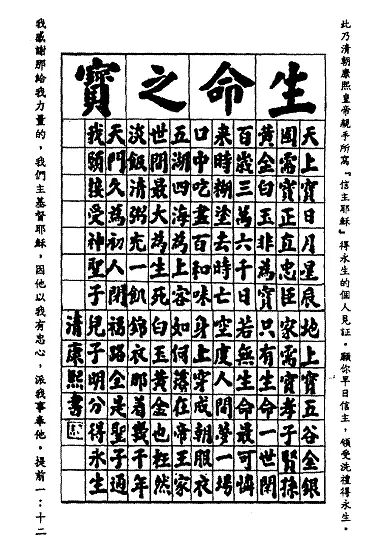 此乃清朝康熙皇帝親手所寫『信主耶穌』得永生的個人見証。願你早日信主，領受洗禮得永生。
生命之寶
天上寶日月星辰地上寶五谷金銀
國需寶正直忠臣家需寶孝子賢孫
黃金白玉非為寶只有生命一世閒
百歲三萬六千日若無生命最可憐
來時糊塗去時亡空度人間夢一場
口中吃盡百和味身上穿成朝服衣
五湖四海為上客如何落在帝王家
世間最大為生死白玉黃金也枉然
淡飯清粥充一飢錦衣那着幾千年
天門久為初人閉福路全是聖子通
我願接受神聖子兒子明分得永生
清康熙書
我感謝那給我力量的，我們主基督耶穌，因他以我有忠心，派我事奉他。提前一：十二